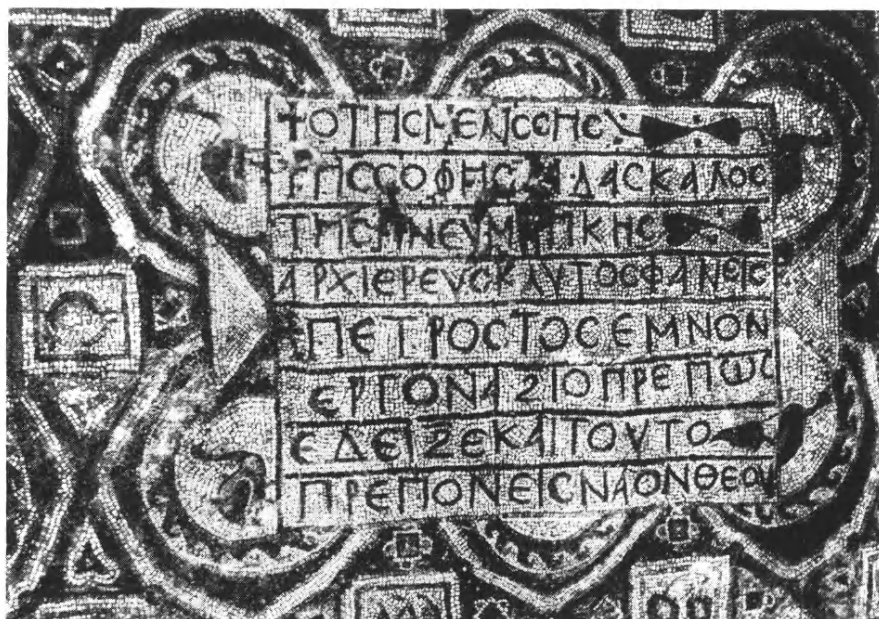 +ΟΤΗϹΜΕΝϹϹΗΕΥ
ΓΗϹϹΟΦΗϹ ΔΑϹΚΑΛΟϹ
ΤΗϹΠΝΕΥΜΑΤΙΚΗϹ
ΑΡΧΙΕΡΕΥϹΚΛΥΤΟϹΦΑΝΕΙϹ
ΠΕΤΡΟϹΤΟϹΕΜΝΟΝ
ΕΡΓΟΝΑΞΙΟΠΡΕΠΩϹ
ΕΔΕΙΞΕΚΑΙΤΟΥΤΟ
ΠΡΕΠΟΝΕΙϹΝΑΟΝΘΕΟΥ